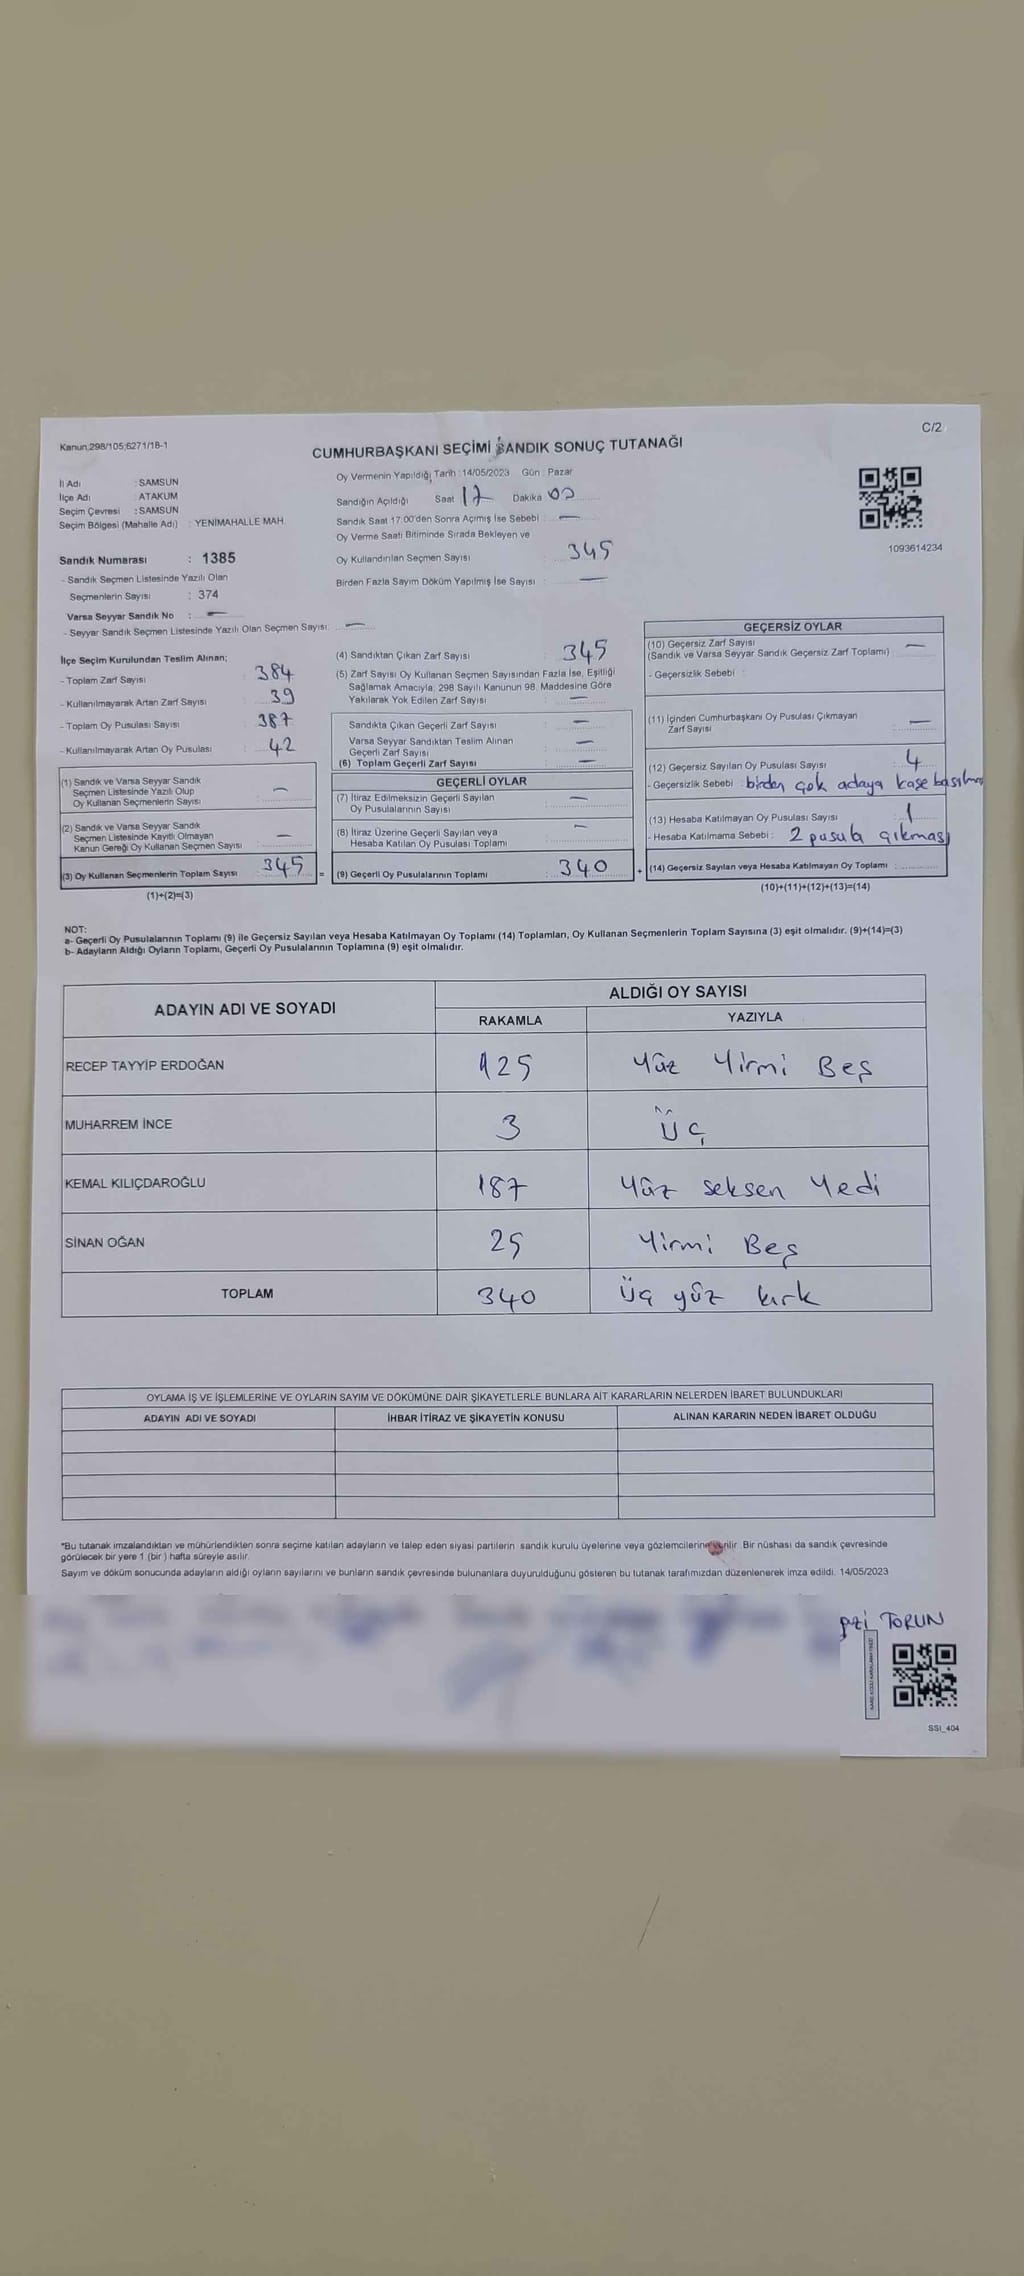 Kanun:298/105;6271/18-1
C/2
CUMHURBAŞKANI SEÇİMİ SANDIK SONUÇ TUTANAĞI
İl Adı : SAMSUN
İlçe Adı : ATAKUM
Seçim Çevresi : SAMSUN
Seçim Bölgesi (Mahalle Adı) : YENİMAHALLE MAH.
Sandık Numarası : 1385
- Sandık Seçmen Listesinde Yazılı Olan
Seçmenlerin Sayısı : 374
Varsa Seyyar Sandık No : —
- Seyyar Sandık Seçmen Listesinde Yazılı Olan Seçmen Sayısı: —
Oy Vermenin Yapıldığı Tarih : 14/05/2023 Gün : Pazar
Sandığın Açıldığı Saat 17 Dakika 00
Sandık Saat 17:00'den Sonra Açımış İse Sebebi : —
Oy Verme Saati Bitiminde Sırada Bekleyen ve
Oy Kullandırılan Seçmen Sayısı : 345
Birden Fazla Sayım Döküm Yapılmış İse Sayısı : —
1093614234
İlçe Seçim Kurulundan Teslim Alınan;
- Toplam Zarf Sayısı : 384
- Kullanılmayarak Artan Zarf Sayısı : 39
- Toplam Oy Pusulası Sayısı : 387
- Kullanılmayarak Artan Oy Pusulası : 42
(1) Sandık ve Varsa Seyyar Sandık
Seçmen Listesinde Yazılı Olup
Oy Kullanan Seçmenlerin Sayısı : —
(2) Sandık ve Varsa Seyyar Sandık
Seçmen Listesinde Kayıtlı Olmayan
Kanun Gereği Oy Kullanan Seçmen Sayısı : —
(3) Oy Kullanan Seçmenlerin Toplam Sayısı : 345 =
(1)+(2)=(3)
(4) Sandıktan Çıkan Zarf Sayısı : 345
(5) Zarf Sayısı Oy Kullanan Seçmen Sayısından Fazla İse, Eşitliği
Sağlamak Amacıyla, 298 Sayılı Kanunun 98. Maddesine Göre
Yakılarak Yok Edilen Zarf Sayısı : —
Sandıkta Çıkan Geçerli Zarf Sayısı : —
Varsa Seyyar Sandıktan Teslim Alınan
Geçerli Zarf Sayısı : —
(6) Toplam Geçerli Zarf Sayısı : —
GEÇERLİ OYLAR
(7) İtiraz Edilmeksizin Geçerli Sayılan
Oy Pusulalarının Sayısı : —
(8) İtiraz Üzerine Geçerli Sayılan veya
Hesaba Katılan Oy Pusulası Toplamı : —
(9) Geçerli Oy Pusulalarının Toplamı : 340 +
GEÇERSİZ OYLAR
(10) Geçersiz Zarf Sayısı
(Sandık ve Varsa Seyyar Sandık Geçersiz Zarf Toplamı) : —
- Geçersizlik Sebebi :
(11) İçinden Cumhurbaşkanı Oy Pusulası Çıkmayan
Zarf Sayısı : —
(12) Geçersiz Sayılan Oy Pusulası Sayısı : 4
- Geçersizlik Sebebi : birden çok adaya kaşe basılma
(13) Hesaba Katılmayan Oy Pusulası Sayısı : 1
- Hesaba Katılmama Sebebi : 2 pusula çıkması
(14) Geçersiz Sayılan veya Hesaba Katılmayan Oy Toplamı :
(10)+(11)+(12)+(13)=(14)
NOT:
a- Geçerli Oy Pusulalarının Toplamı (9) ile Geçersiz Sayılan veya Hesaba Katılmayan Oy Toplamı (14) Toplamları, Oy Kullanan Seçmenlerin Toplam Sayısına (3) eşit olmalıdır. (9)+(14)=(3)
b- Adayların Aldığı Oyların Toplamı, Geçerli Oy Pusulalarının Toplamına (9) eşit olmalıdır.
ADAYIN ADI VE SOYADI
ALDIĞI OY SAYISI
RAKAMLA YAZIYLA
RECEP TAYYİP ERDOĞAN 125 Yüz Yirmi Beş
MUHARREM İNCE 3 Üç
KEMAL KILIÇDAROĞLU 187 Yüz seksen Yedi
SİNAN OĞAN 25 Yirmi Beş
TOPLAM 340 Üç yüz kırk
OYLAMA İŞ VE İŞLEMLERİNE VE OYLARIN SAYIM VE DÖKÜMÜNE DAİR ŞİKAYETLERLE BUNLARA AİT KARARLARIN NELERDEN İBARET BULUNDUKLARI
ADAYIN ADI VE SOYADI İHBAR İTİRAZ VE ŞİKAYETİN KONUSU ALINAN KARARIN NEDEN İBARET OLDUĞU
*Bu tutanak imzalandıktan ve mühürlendikten sonra seçime katılan adayların ve talep eden siyasi partilerin sandık kurulu üyelerine veya gözlemcilerine verilir. Bir nüshası da sandık çevresinde
görülecek bir yere 1 (bir) hafta süreyle asılır.
Sayım ve döküm sonucunda adayların aldığı oyların sayılarını ve bunların sandık çevresinde bulunanlara duyurulduğunu gösteren bu tutanak tarafımızdan düzenlenerek imza edildi. 14/05/2023
TORUN
SSI_404